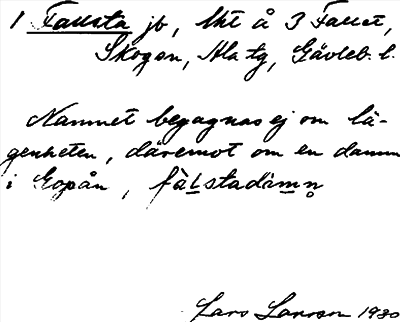 1 Fallsta jb, lht å 3 Fallet,
Skogen, Ala tg, Gävleb. l.
Namnet begagnas ej om lä-
genheten, däremot om en damm
i Gopån, fàlstadàmn̥
Lars Larsson 1930